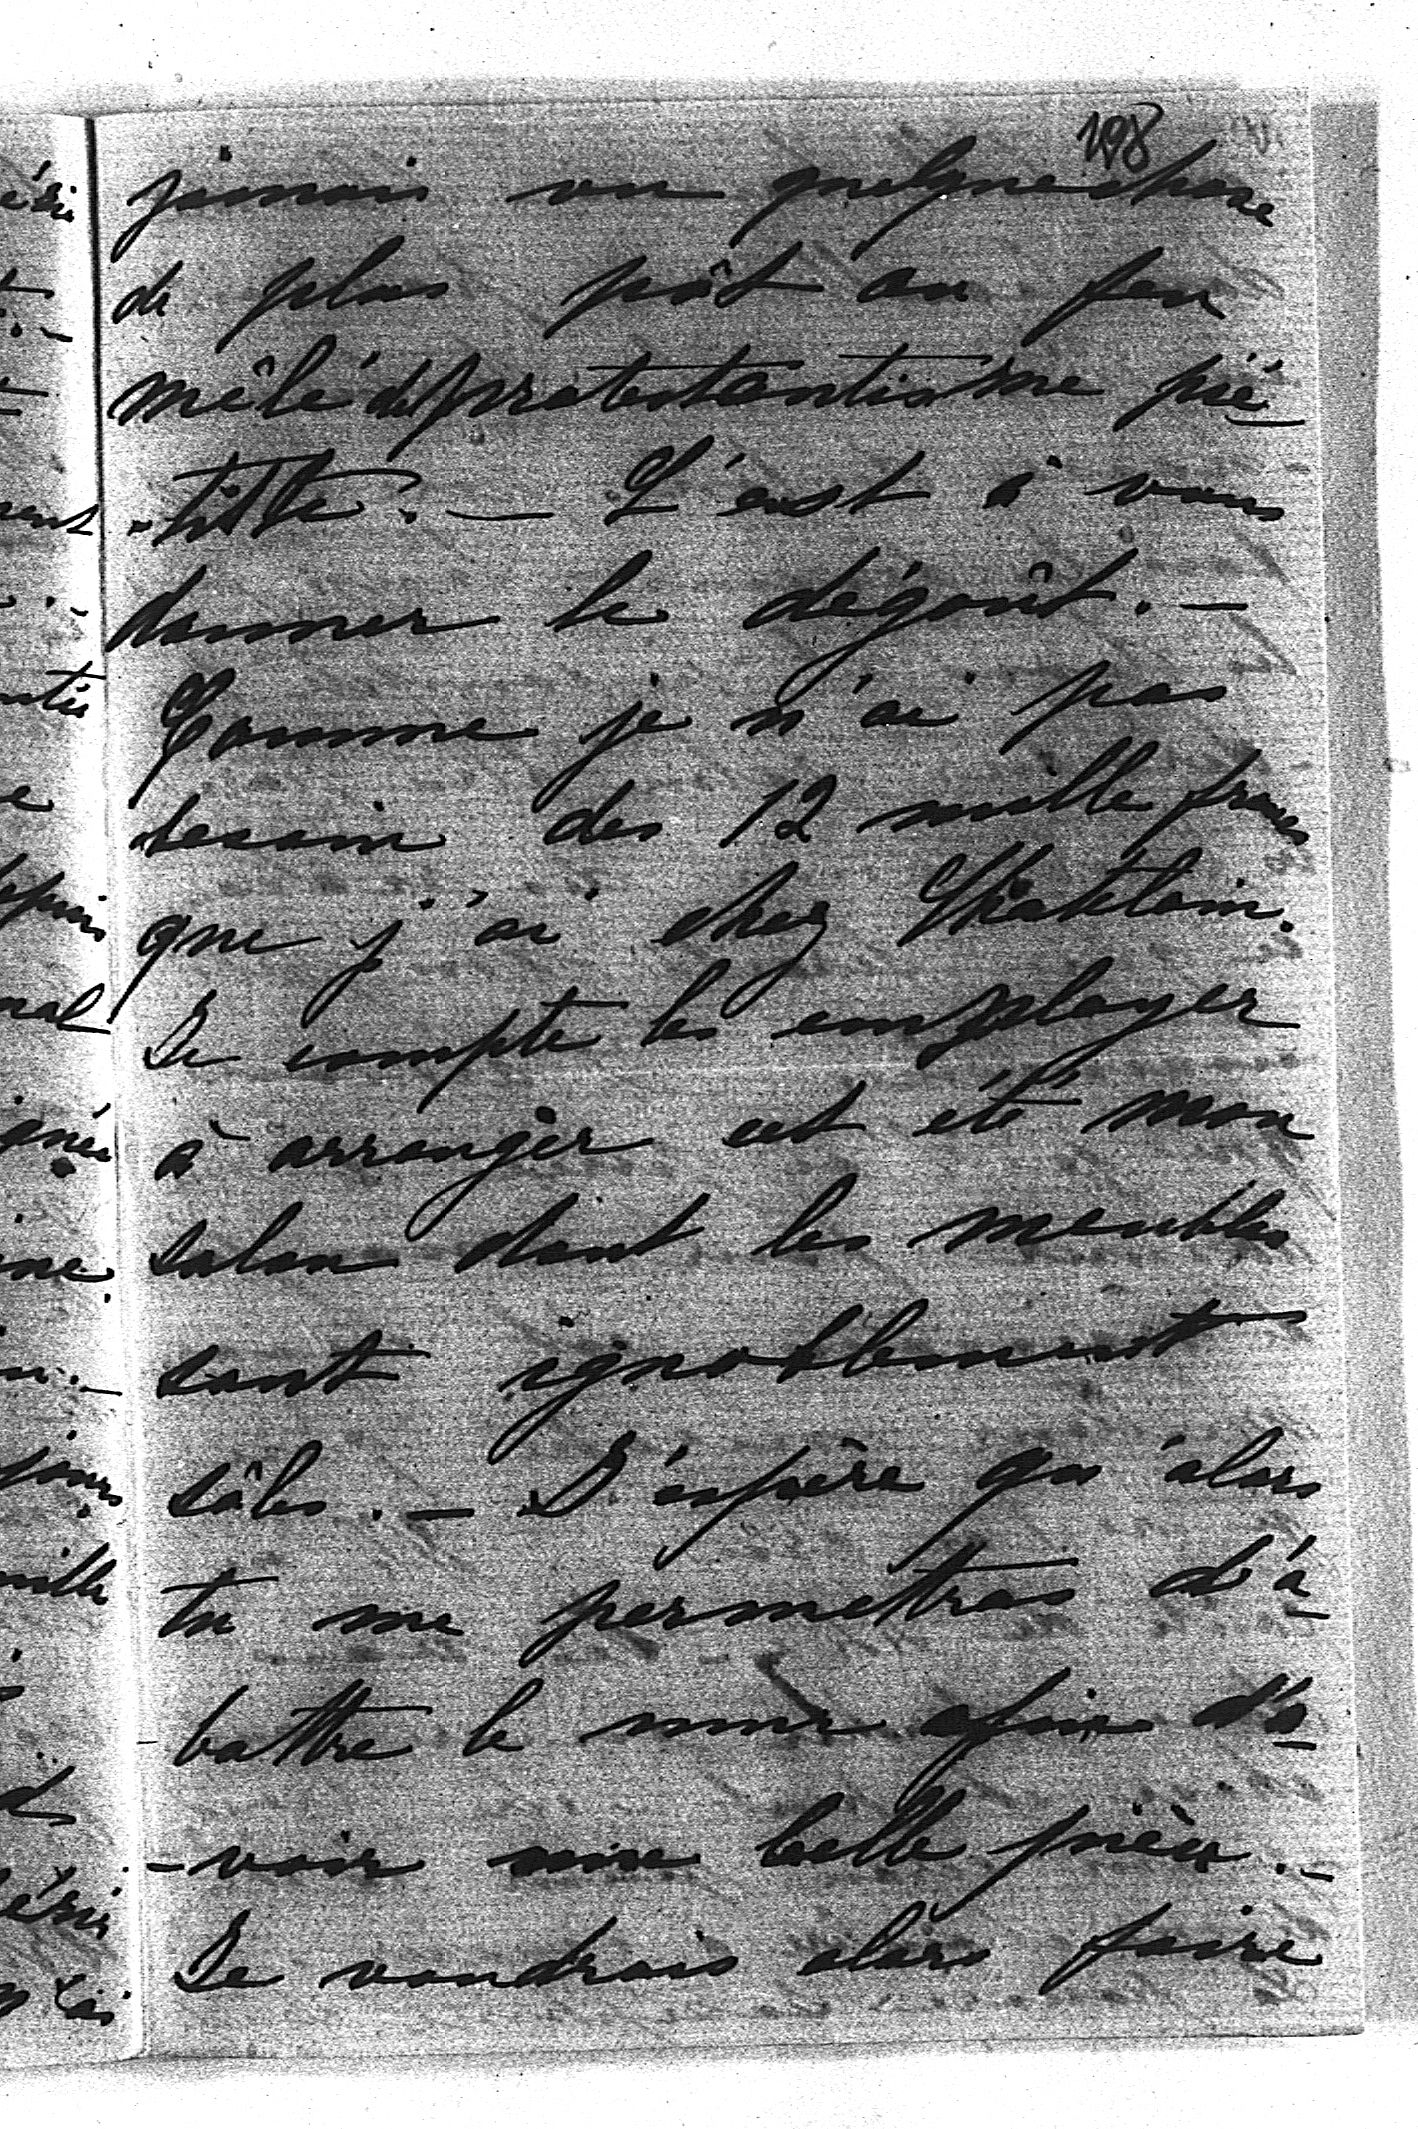 198
jamais vu quelque chose
de plus pôt au feu
mêlé de protestantisme pié-
-tiste. — C'est à vous
donner le dégoût. —
Comme je n'ai pas
besoin des 12 mille francs
que j'ai chez Chatelain.
Je compte les employer
à arranger cet été mon
salon dont les meubles
sont ignoblement
sâles. — J'espère qu'alors
tu me permettras d'a-
-battre le mur afin d'a-
-voir une belle pièce. —
Je voudrais alors faire